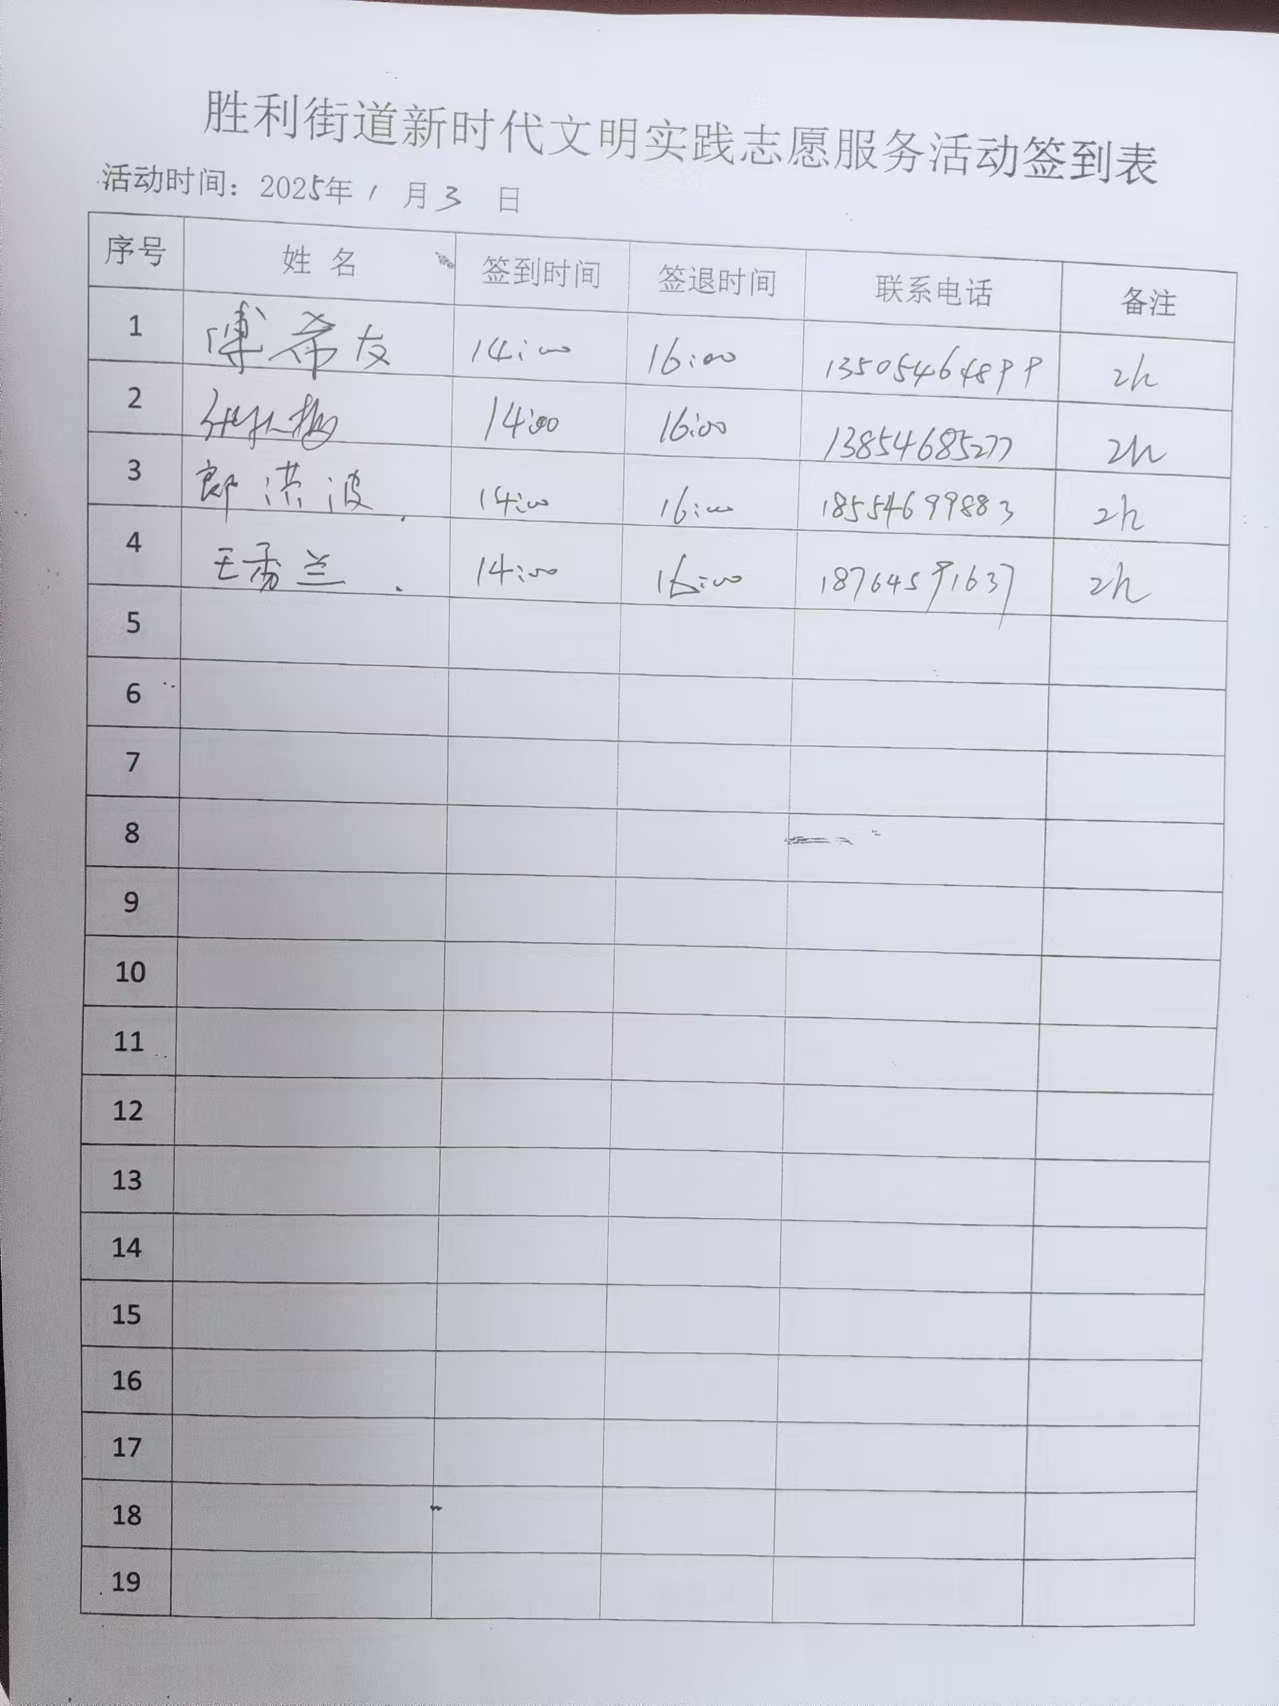 胜利街道新时代文明实践志愿服务活动签到表
活动时间：2025年 1 月 3 日
序号 姓 名 签到时间 签退时间 联系电话 备注
1 傅希友 14:00 16:00 13505464899 2h
2 14:00 16:00 13854685277 2h
3 郎洪波 14:00 16:00 18554699883 2h
4 王秀兰 14:00 16:00 18764591637 2h
5
6
7
8
9
10
11
12
13
14
15
16
17
18
19